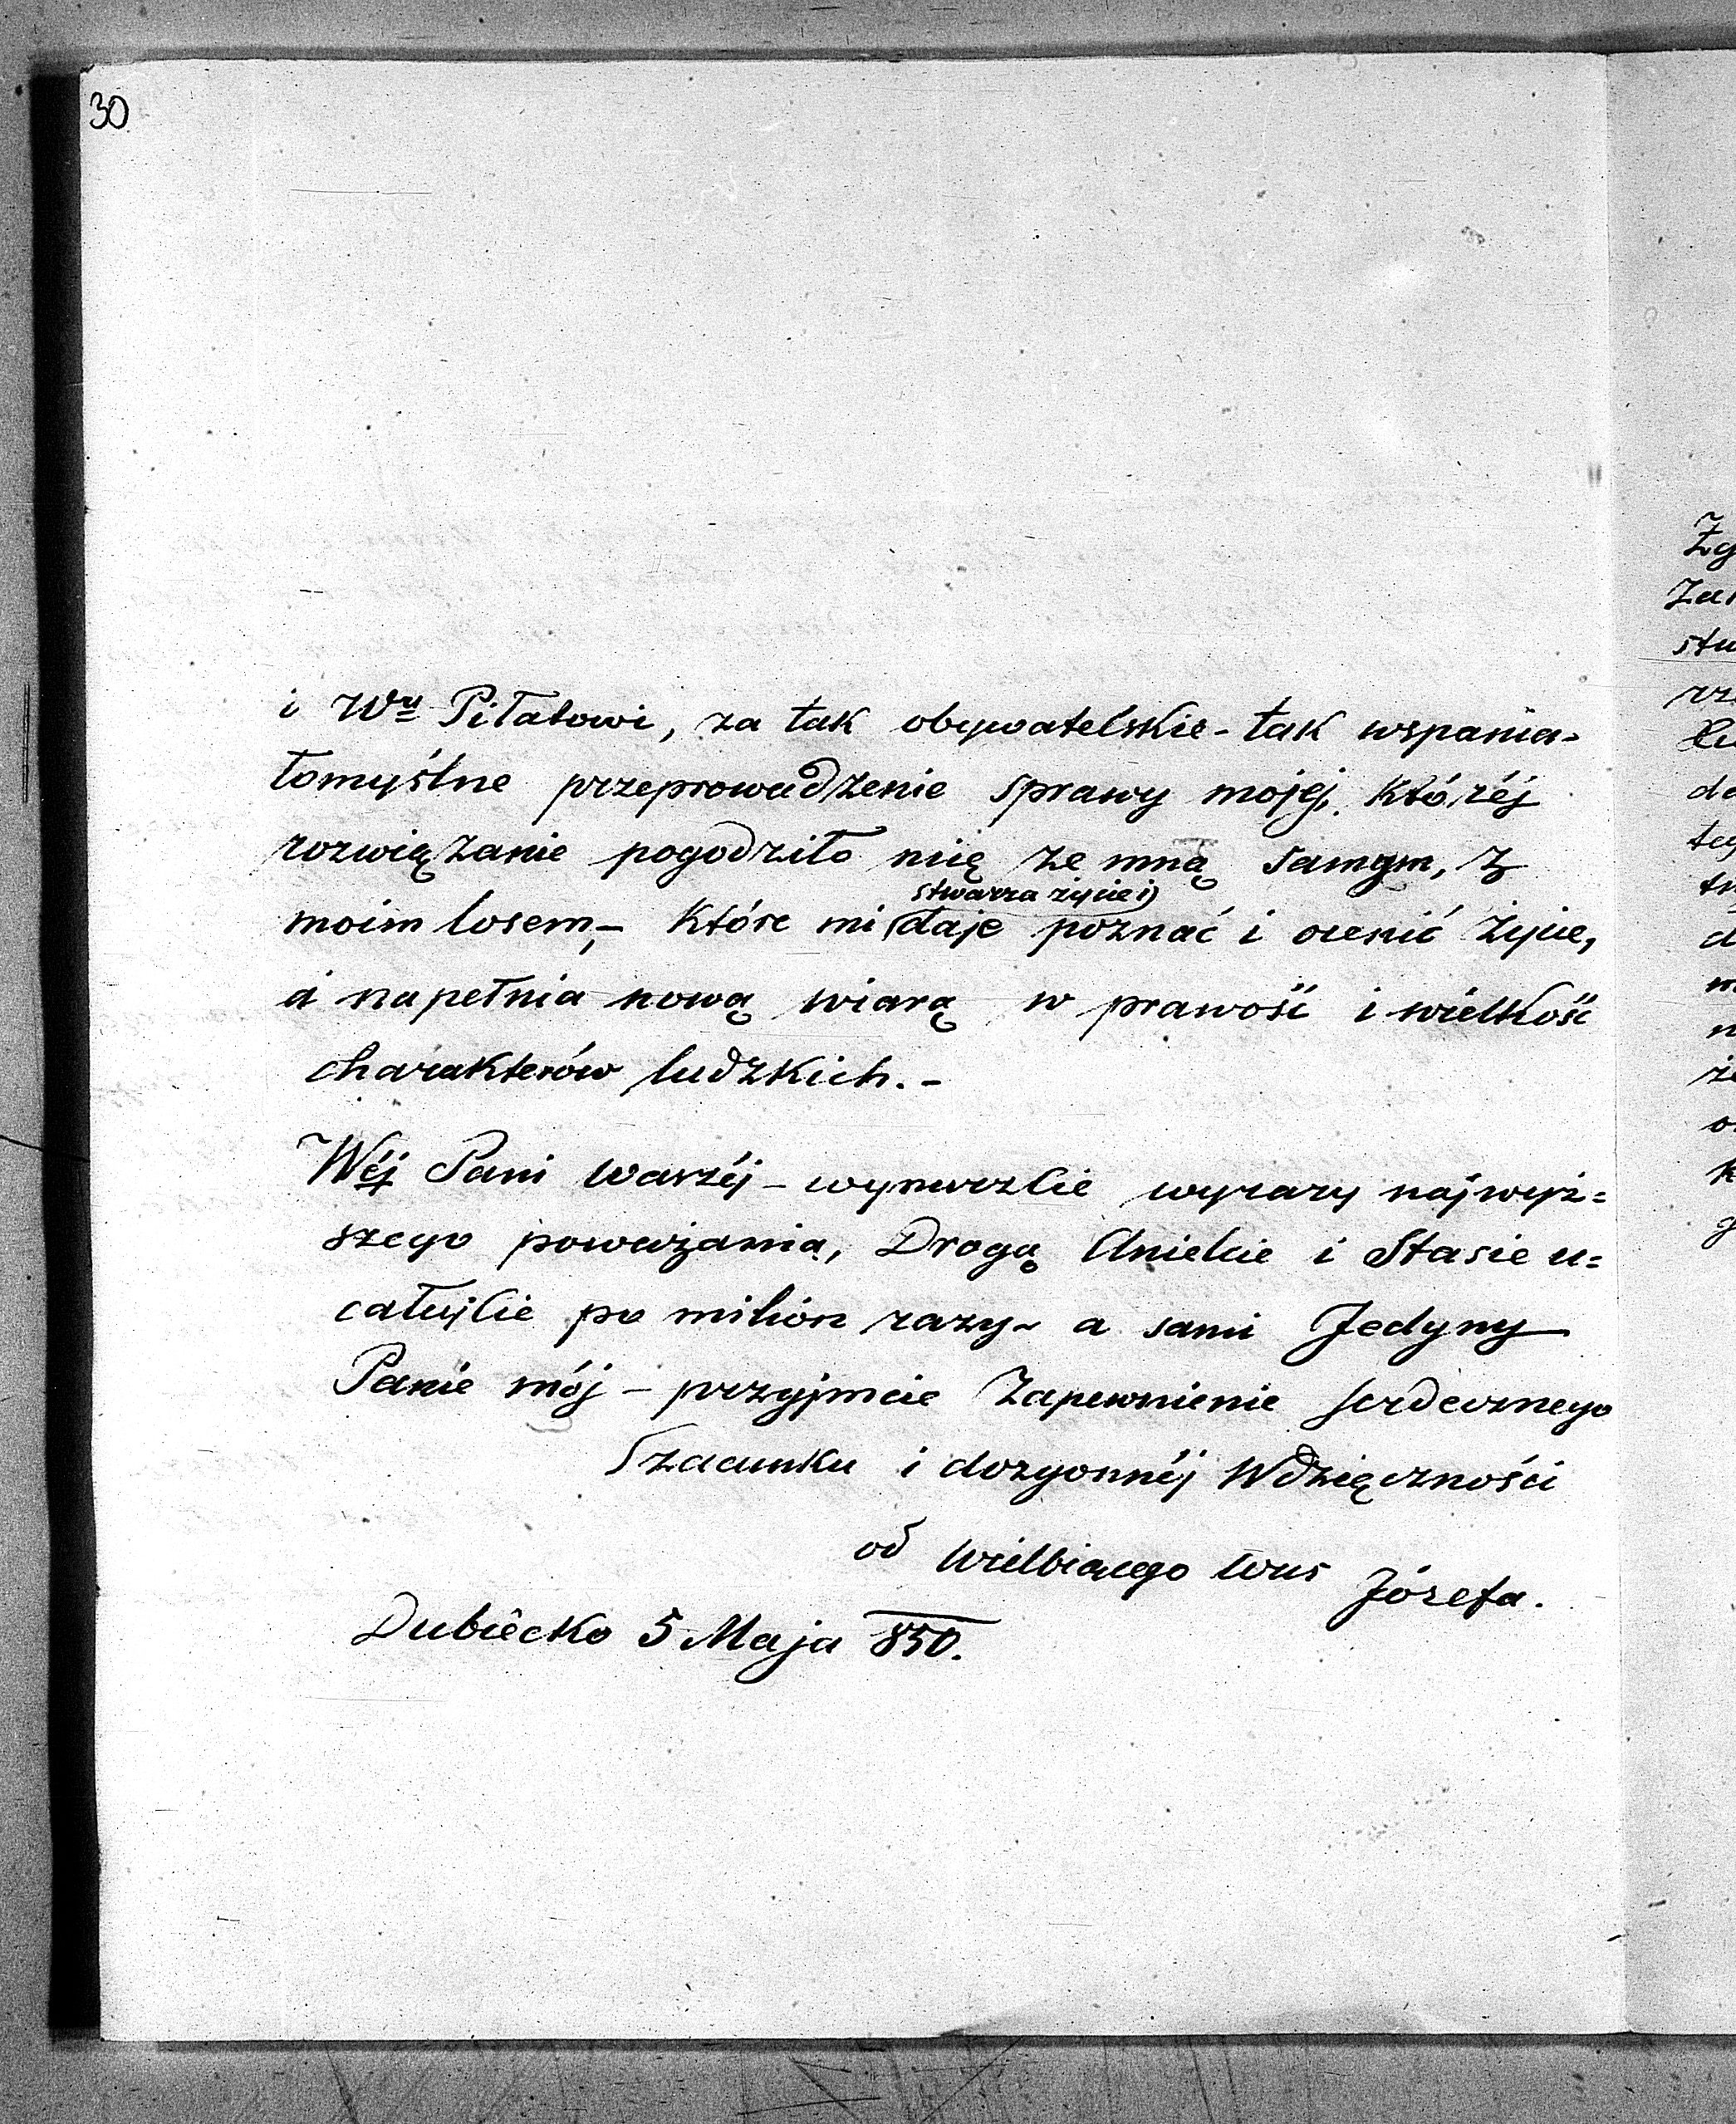 30
i Wu Piłatowi, za tak obywatelskie - tak wspania=
łomyślne przeprowadzenie sprawy mojéj, któréj
rozwiązanie pogodziło mię ze mną samym, z
stwarza życie i
moim losem, - które mi daje poznać i ocenić życie,
i napełnia nową wiarą w prawość i wielkość
charakterów ludzkich. -
Wéj Pani Waszéj - wynurzcie wyrazy najwyż=
szego poważania, Drogą Anielcie i Stasie u=
całujcie po milión razy - a sami Jedyny
Panie mój - przyjmcie Zapewnienie serdecznego
Szacunku i dozgonnéj Wdzięczności
od wielbiącego Was Józefa.
Dubiecko 5 Maja 850.
Zg
Zak